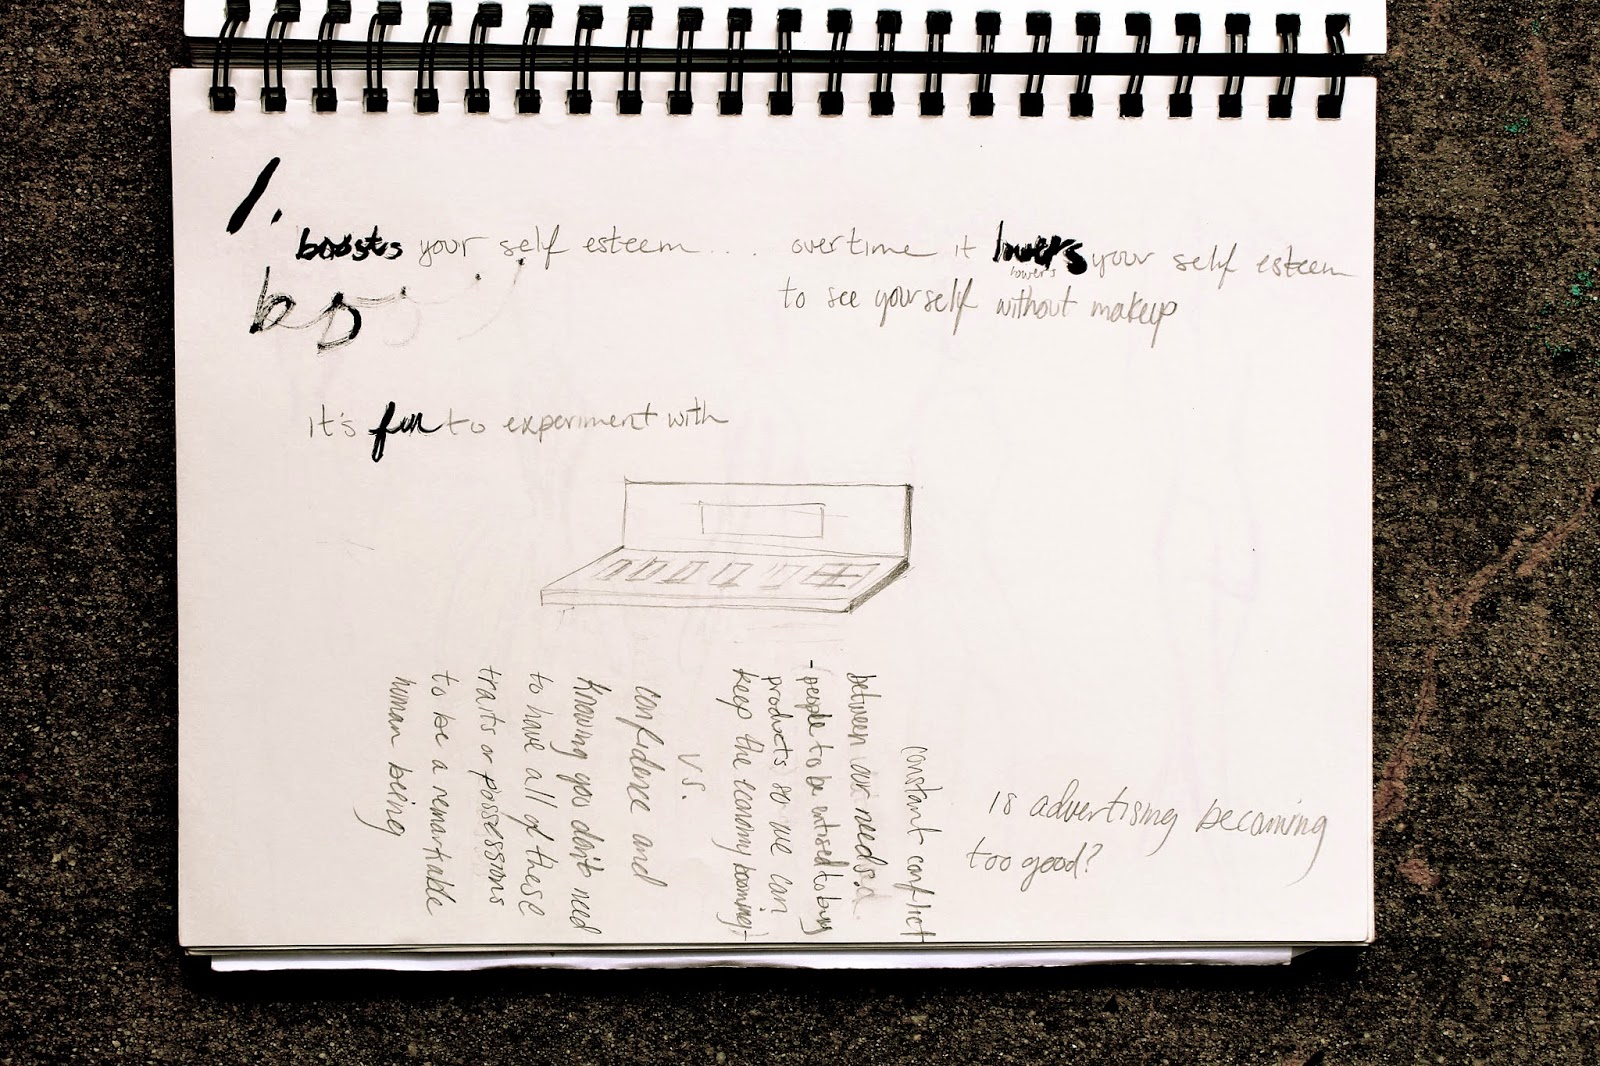 1.
boosts your self esteem.... overtime it lowers your self esteem
lowers
to see yourself without makeup
bo
it's fun to experiment with
constant conflict
between our needs.
- people to be enticed to buy
products so we can
keep the economy booming +
vs.
confidence and
knowing you don't need
to have all of these
traits or possessions
to be a remarkable
human being
is advertising becoming
too good?